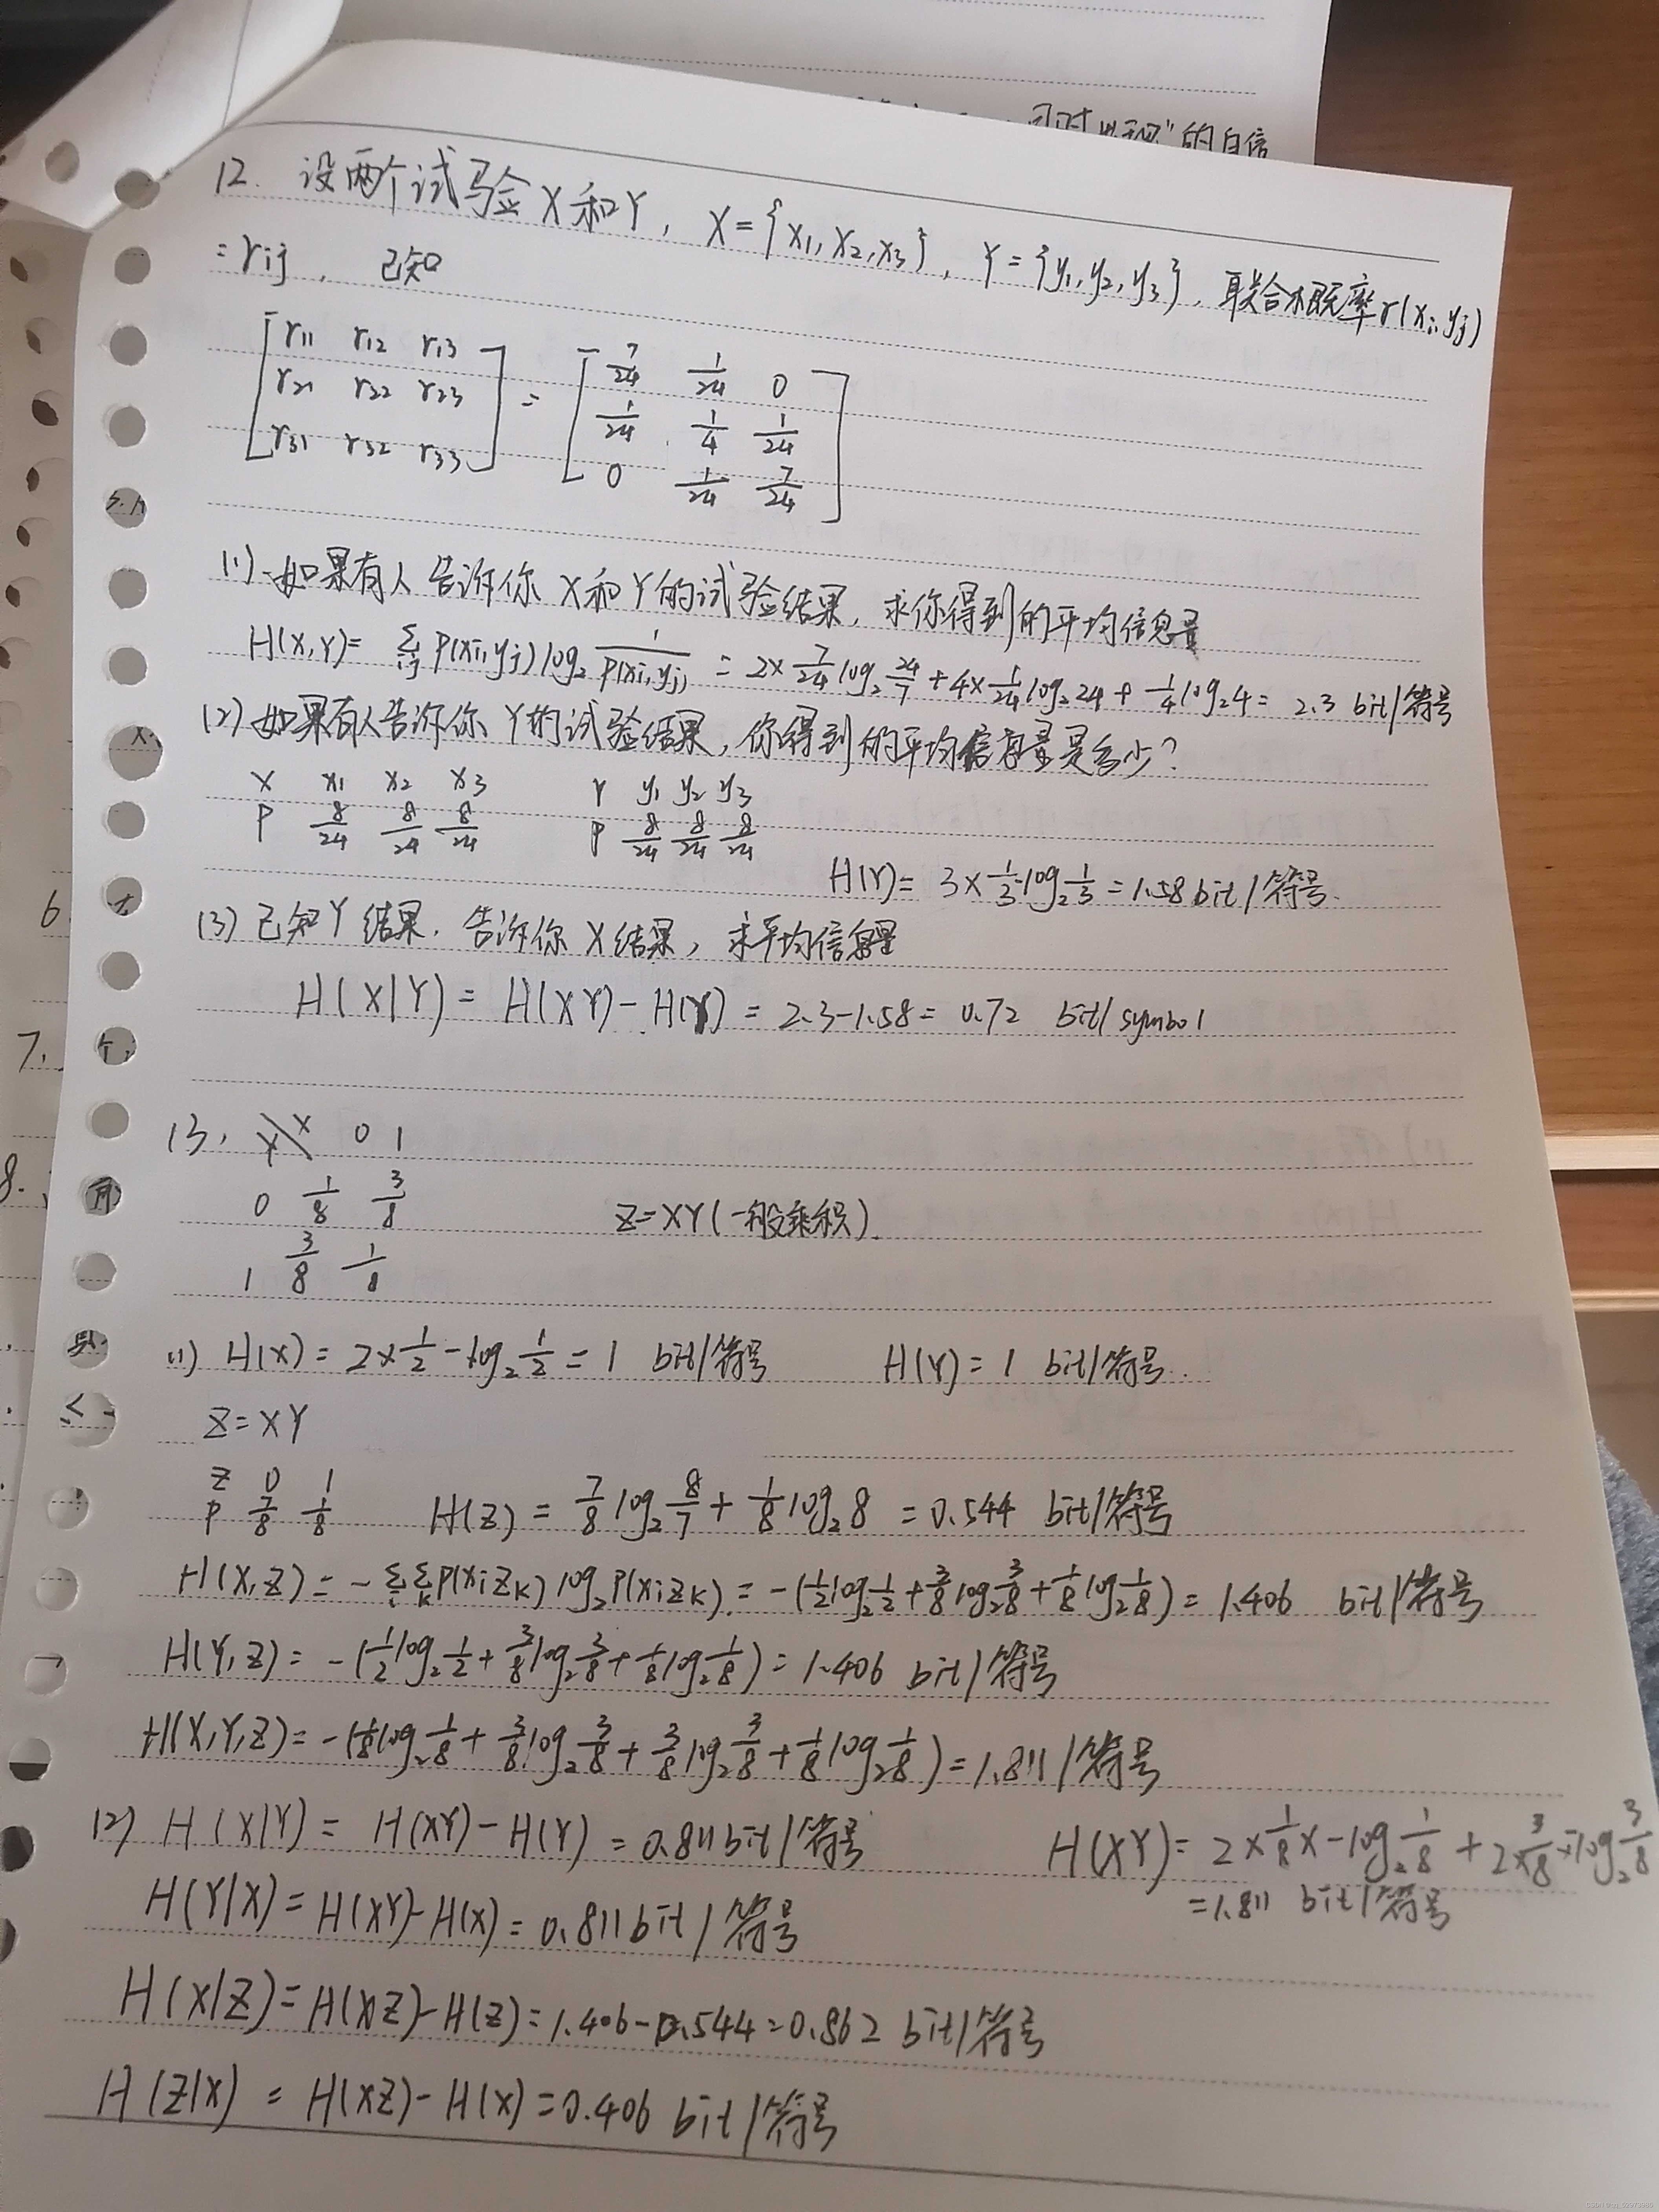 同时出现"的自信
12. 设两个试验X和Y, X={x₁,x₂,x₃}, Y={y₁,y₂,y₃}, 联合概率r(xᵢ,yⱼ)
=rij, 已知
[r11 r12 r13] = [7/24 1/24 0]
[r21 r22 r23] [1/24 1/4 1/24]
[r31 r32 r33] [0 1/24 7/24]
(1) 如果有人告诉你X和Y的试验结果, 求你得到的平均信息量
H(X,Y)= Σij p(xi,yj) log₂ 1/p(xi,yj) = 2×7/24 log₂ 24/7 + 4×1/24 log₂ 24 + 1/4 log₂ 4 = 2.3 bit/符号
(2) 如果有人告诉你Y的试验结果, 你得到的平均信息量是多少?
X x₁ x₂ x₃ Y y₁ y₂ y₃
P 8/24 8/24 8/24 P 8/24 8/24 8/24
H(Y)= 3×1/3·log₂ 1/3 = 1.58 bit/符号.
(3) 已知Y结果. 告诉你X结果, 求平均信息量
H(X|Y) = H(XY)-H(Y) = 2.3-1.58 = 0.72 bit/symbol
13. Y\X 0 1
0 1/8 3/8 Z=XY(一般乘积).
1 3/8 1/8
(1) H(X) = 2×1/2-log₂ 1/2 = 1 bit/符号 H(Y) = 1 bit/符号.
Z=XY
Z 0 1
P 7/8 1/8 H(Z) = 7/8 log₂ 8/7 + 1/8 log₂ 8 = 0.544 bit/符号
H(X,Z) = -Σi Σk p(xi zk) log₂ p(xi zk) = -(1/2 log₂ 1/2 + 3/8 log₂ 3/8 + 1/8 log₂ 1/8) = 1.406 bit/符号
H(Y,Z) = -(1/2 log₂ 1/2 + 3/8 log₂ 3/8 + 1/8 log₂ 1/8) = 1.406 bit/符号
H(X,Y,Z) = -(1/8 log₂ 1/8 + 3/8 log₂ 3/8 + 3/8 log₂ 3/8 + 1/8 log₂ 1/8) = 1.811/符号
(2) H(X|Y) = H(XY)-H(Y) = 0.811 bit/符号 H(XY) = 2×1/8×-log₂ 1/8 + 2×3/8×-log₂ 3/8
=1.811 bit/符号
H(Y|X) = H(XY)-H(X) = 0.811 bit/符号
H(X|Z) = H(XZ)-H(Z) = 1.406-0.544 = 0.862 bit/符号
H(Z|X) = H(XZ)-H(X) = 0.406 bit/符号
6.
7.
8.